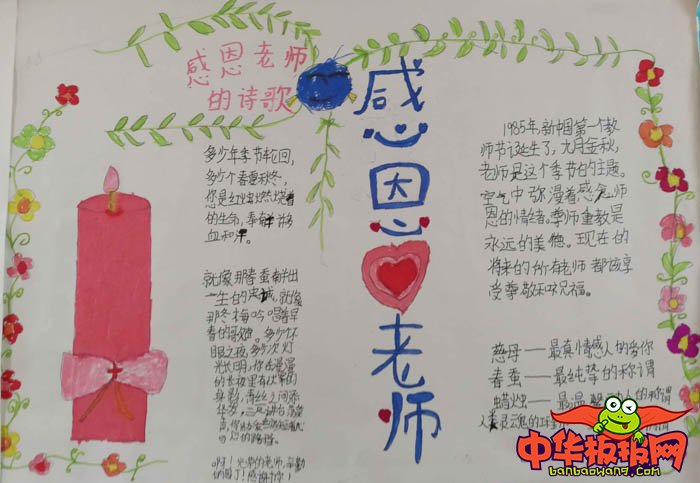 感恩老师
的诗歌
多少年季节轮回,
多少个春夏秋冬,
您是红烛燃烧着
的生命,奉献
血和
就像那春蚕献出
一生的忠诚,就像
那冬梅吟唱着早
春的歌
眼之夜,多少次灯
光长明,你在漫漫
的长夜里有
身影,青丝之间添
华发,三尺讲台
啊!光荣的老师,辛勤
的园丁!感谢
感恩
老师
1985年,新中国第一个教
师节诞生了,九月金秋,
老师是这个季节的主题。
空气中弥漫着感念师
恩的情绪。季师重教是
永远的美德。现在的
将来的所有老师都该享
受尊敬和祝福。
慈母——最真情感人的爱你
春蚕——最纯挚的称谓
蜡烛——最温
人类灵魂的工程
中华板报网
banbaowang.com